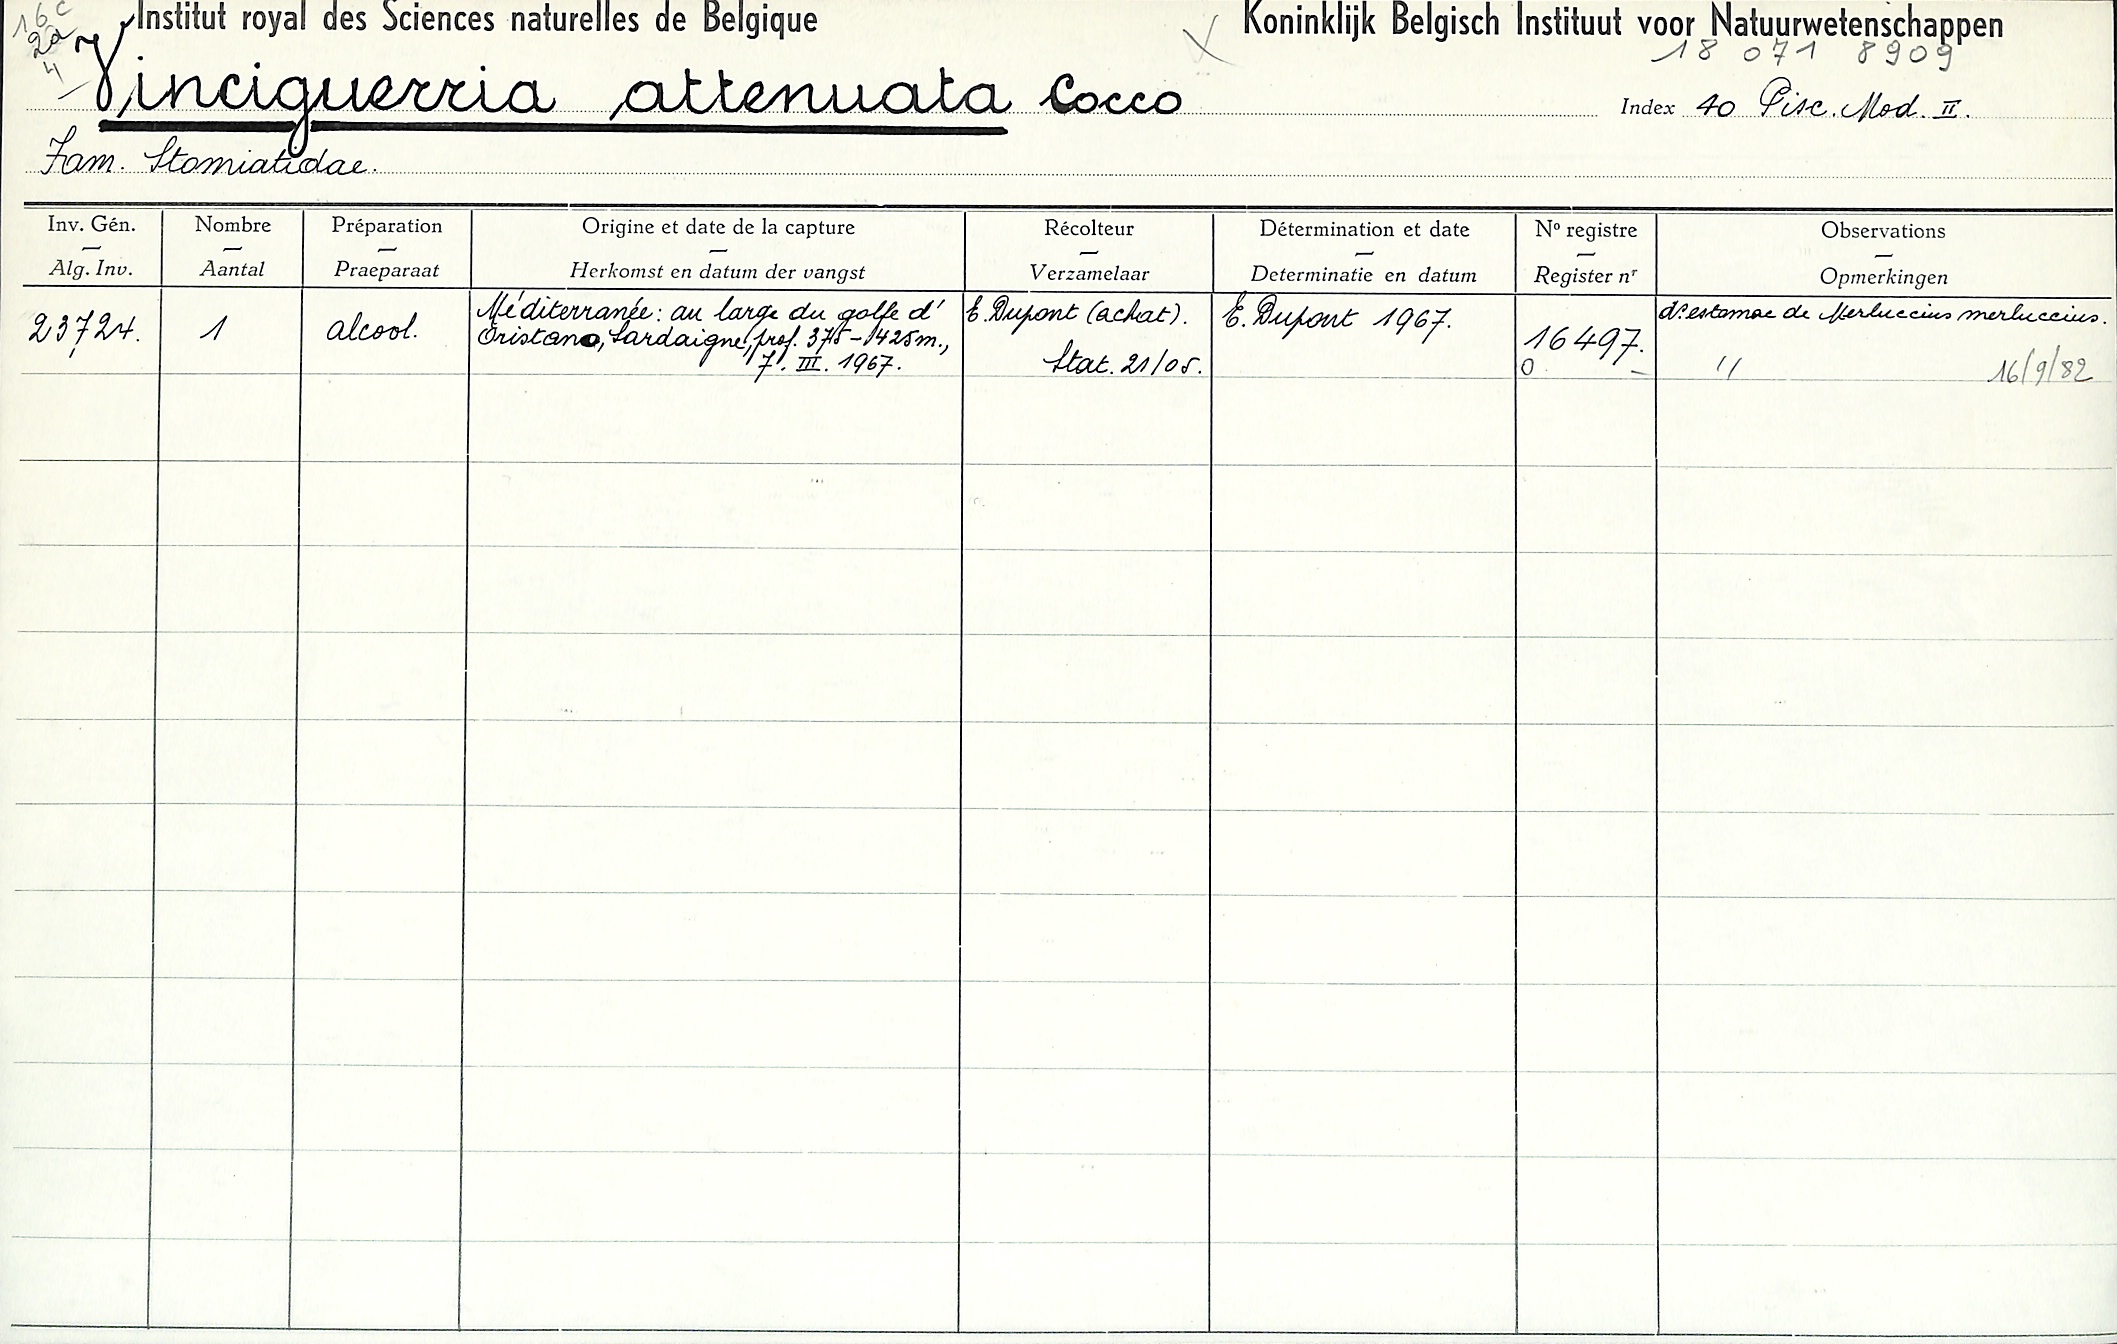 16c
2a
4
Institut royal des Sciences naturelles de Belgique
Koninklijk Belgisch Instituut voor Natuurwetenschappen
18 071 8909
Vinciguerria attenuata Cocco
Index 40 Pisc. Mod. II.
Fam. Stomiatidae.
Inv. Gén.
Alg. Inv.
Nombre
Aantal
Préparation
Praeparaat
Origine et date de la capture
Herkomst en datum der vangst
Récolteur
Verzamelaar
Détermination et date
Determinatie en datum
Nº registre
Register nr
Observations
Opmerkingen
23724.
1
alcool.
Méditerranée: au large du golfe d'
Oristano, Sardaigne, prof. 375-425m.,
7. III. 1967.
E. Dupont (achat).
Stat. 21/05.
E. Dupont 1967.
16497.
0 -
d: estomac de Merluccius merluccius.
" 16/9/82